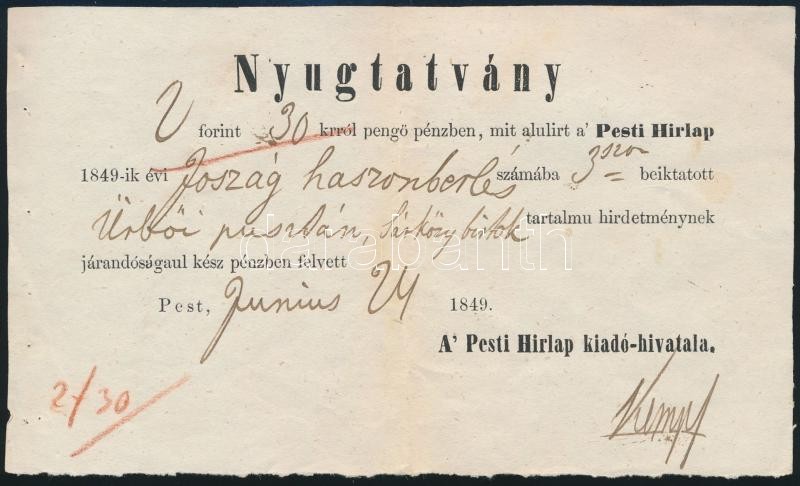 Nyugtatvány
forint 30 krról pengő pénzben, mit alulirt a' Pesti Hirlap
1849-ik évi Joszág haszonberlés számába 3szor beiktatott
Ürbői pusztán, Sárközy birtok tartalmu hirdetménynek
járandóságaul kész pénzben felvett
Pest, Junius 24 1849.
A' Pesti Hirlap kiadó-hivatala.
2/30
Kempf
darabanth